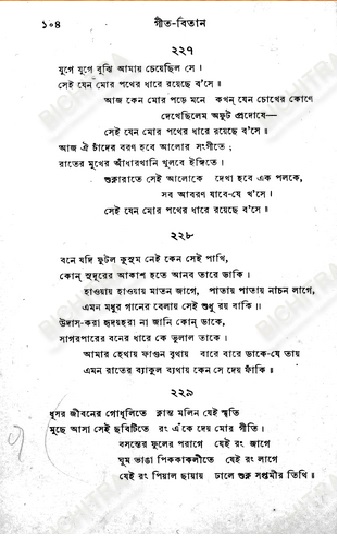 ১০৪ গীত-বিতান
২২৭
যুগে যুগে বুঝি আমায় চেয়েছিল সে।
সেই যেন মোর পথের ধারে রয়েছে ব'সে॥
আজ কেন মোর পড়ে মনে কখন্ যেন চোখের কোণে
দেখেছিলেম অফুট প্রদোষে—
সেই যেন মোর পথের ধারে রয়েছে ব'সে॥
আজ ঐ চাঁদের বরণ হবে আলোর সংগীতে;
রাতের মুখের আঁধারখানি খুলবে ইঙ্গিতে।
শুক্লারাতে সেই আলোকে দেখা হবে এক পলকে,
সব আবরণ যাবে-যে খ'সে।
সেই যেন মোর পথের ধারে রয়েছে ব'সে॥
২২৮
বনে যদি ফুটল কুসুম নেই কেন সেই পাখি,
কোন্ সুদূরের আকাশ হতে আনব তারে ডাকি।
হাওয়ায় হাওয়ায় মাতন জাগে, পাতায় পাতায় নাচন লাগে,
এমন মধুর গানের বেলায় সেই শুধু রয় বাকি॥
উদাস-করা হৃদয়হরা না জানি কোন্ ডাকে,
সাগরপারের বনের ধারে কে ভুলাল তাকে।
আমার হেথায় ফাগুন বৃথায় বারে বারে ডাকে-যে তায়
এমন রাতের ব্যাকুল ব্যথায় কেন সে দেয় ফাঁকি॥
২২৯
ধূসর জীবনের গোধূলিতে ক্লান্ত মলিন যেই স্মৃতি
মুছে আসা সেই ছবিটিতে রং এঁকে দেয় মোর গীতি।
বসন্তের ফুলের পরাগে যেই রং জাগে
ঘুম ভাঙা পিককাকলীতে যেই রং লাগে
যেই রং পিয়াল ছায়ায় ঢালে শুক্ল সপ্তমীর তিথি॥
BICHITRA